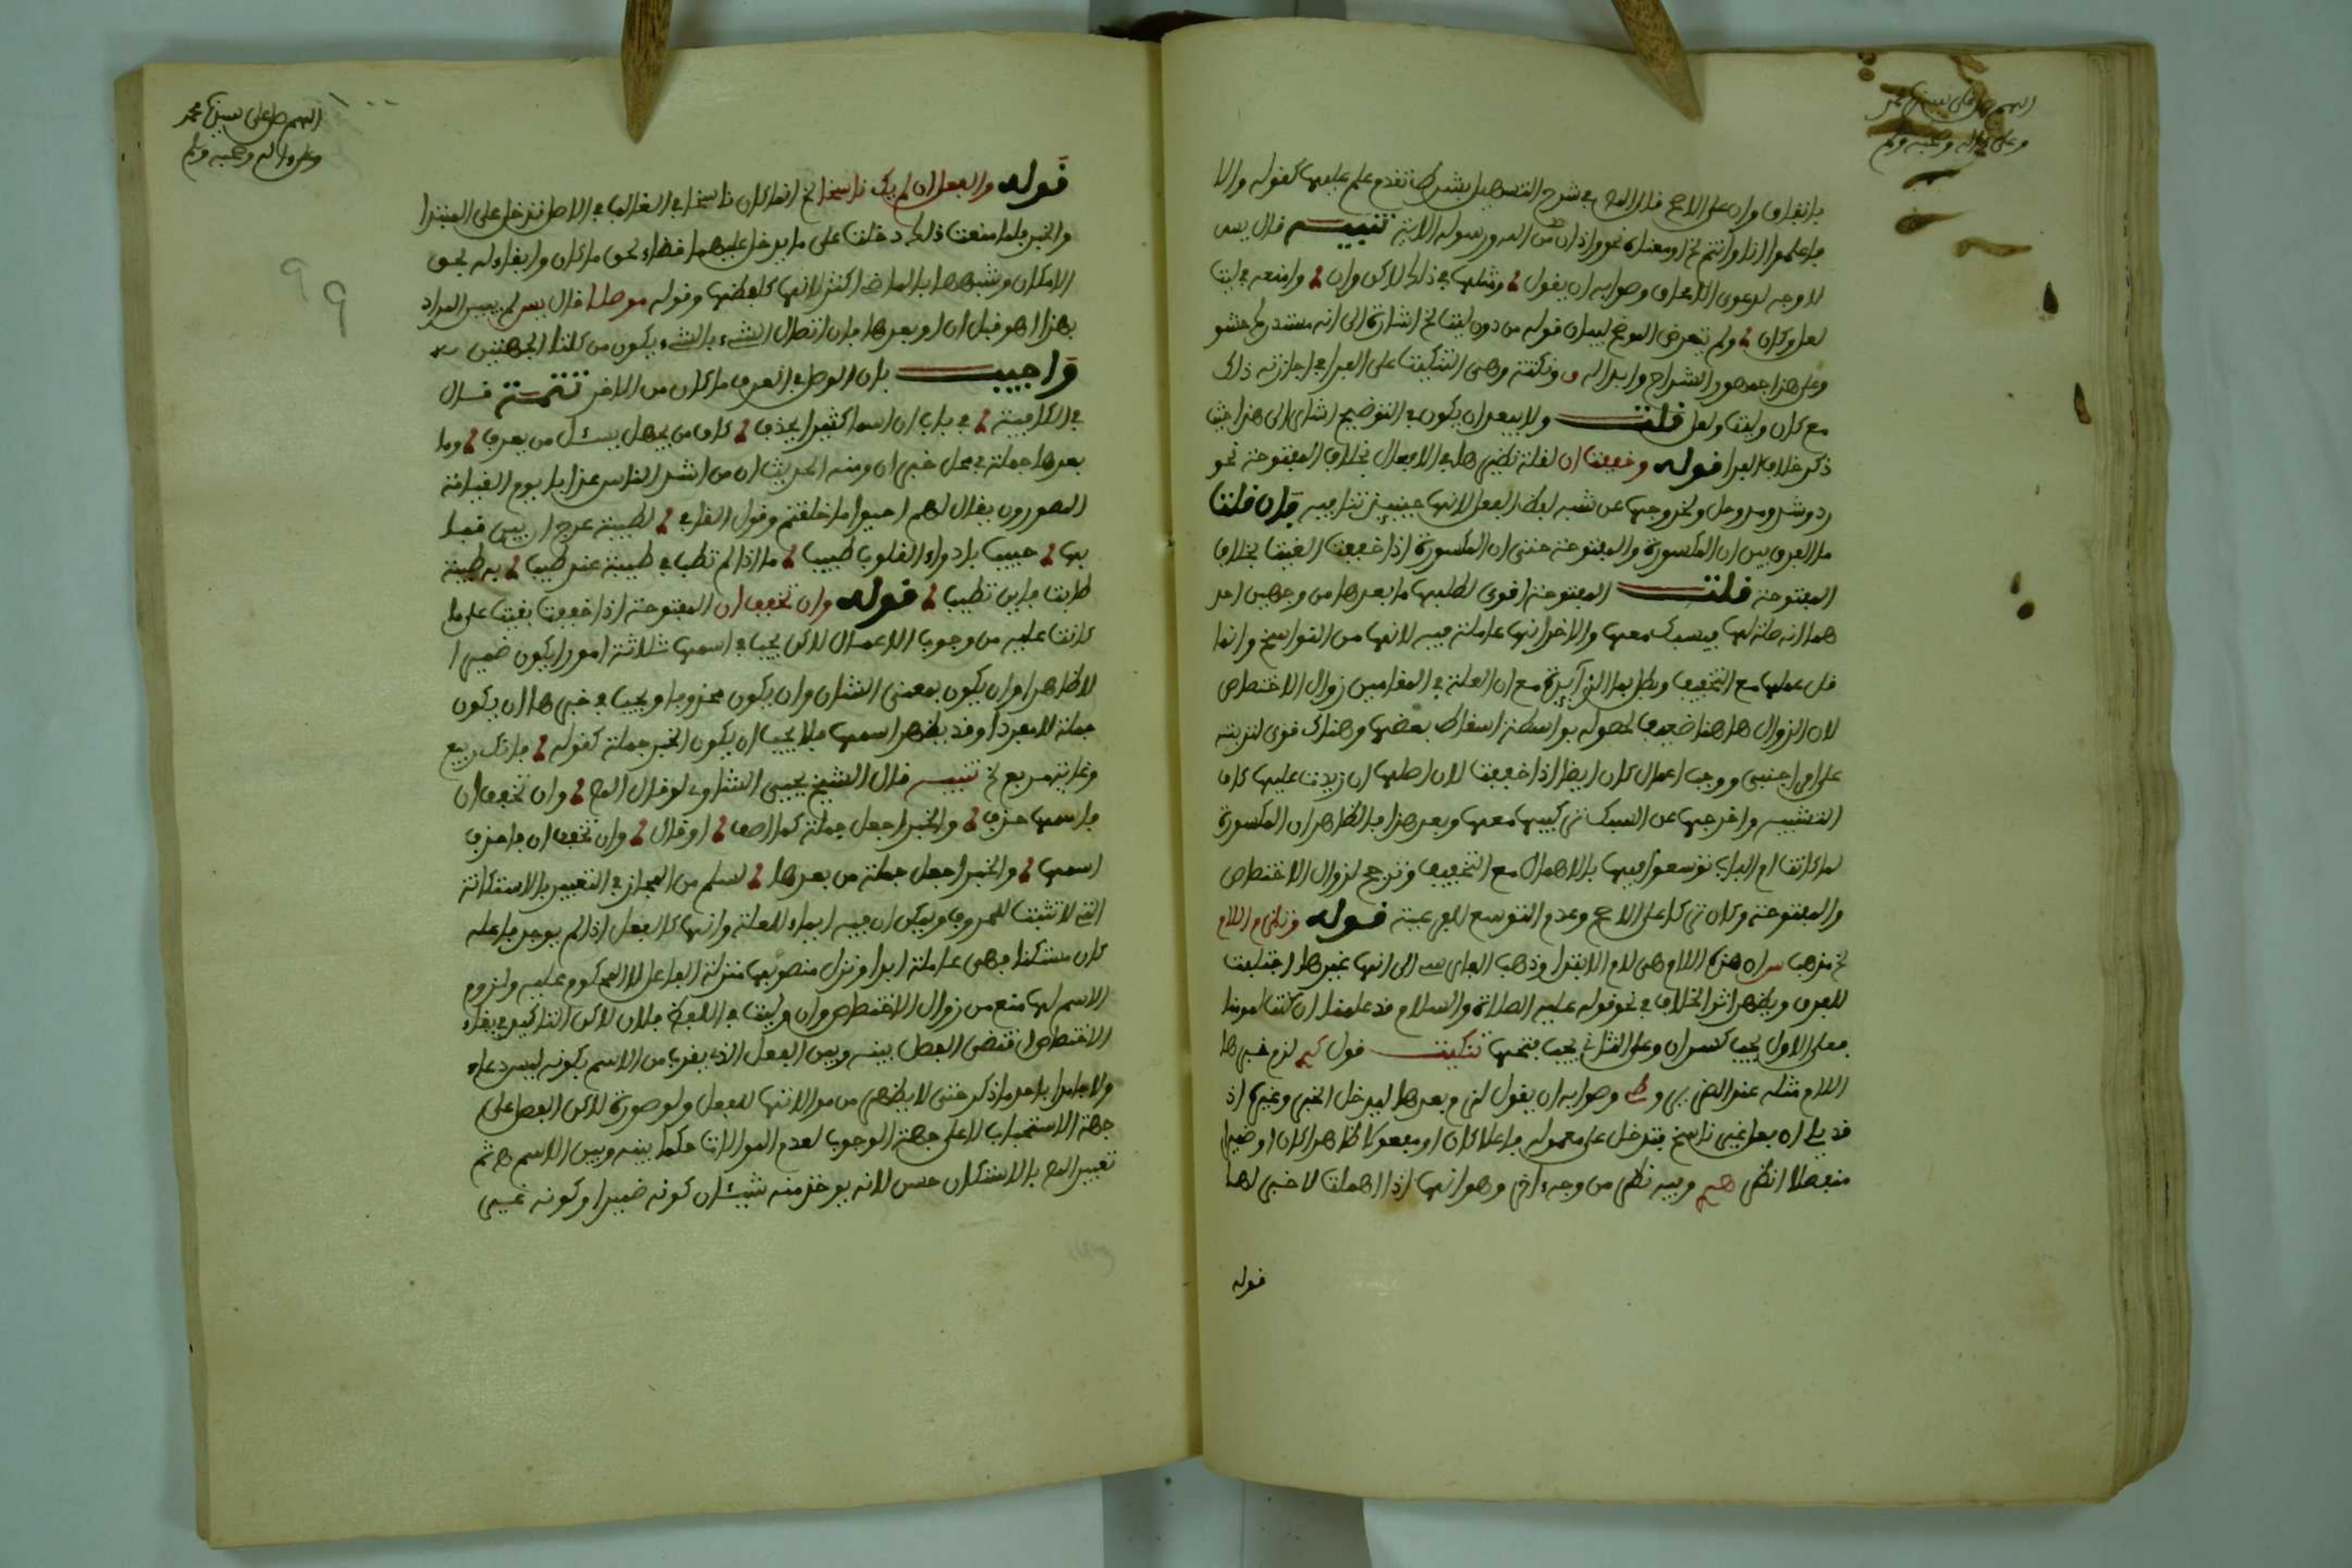 اللهم صل على سيدنا محمد
وعلى ءاله وصحبه وسلم
باتفاق وان على الاصح قال المص في شرح التسهيل بشرط تقدم علم عليها كقوله والا
فاعلموا انا وانتم الخ او معناه نحو واذان من الله ورسوله الاية تنبيه قال يس
لا وجه لدعوى الاتفاق وصوابه ان يقول ومثلها في ذلك لاكن وان وامنعه في ليت
لعل وكان ولم يتعرض الموضح لبيان قوله من دون ليت الخ اشارة الى انه مستدرك حشو
وعلى هذا جمهور الشراح وابدا له ونكتته وهي التنكيت على الفرا في اجازته ذلك
مع كان وليت ولعل قلت ولا يبعد ان يكون في التوضيح اشار الى هذا حيث
ذكر خلاف الفرا قوله وخففت ان لقلة نظيرها في الافعال بخلاف المفتوحة نحو
رد وشد ومد وحل ولخروجها عن شبه لفظ الفعل لانها حينئذ ثنائية فان قلت
ما الفرق بين ان المكسورة والمفتوحة حتى ان المكسورة اذا خففت الغيت بخلاف
المفتوحة قلت المفتوحة اقوى لطلبها ما بعدها من وجهين احد
هما انه صلة لها فيسبك معها والاخر انها عاملة فيه لانها من النواسخ وانما
قل عملها مع التخفيف وبطل بما الزائدة مع ان العلة في المقامين زوال الاختصاص
لان الزوال هاهنا ضعيف لحصوله بواسطة اسقاط بعضها وهناك قوى لتزيينه
على امر اجنبي ووجب اعمال كان ايضا اذا خففت لان اصلها ان زيدت عليها كاف
التشبيه واخرجها عن السبك تركيبها معها وبعد هذا فالظاهر ان المكسورة
لما كانت ام الباب توسعوا فيها بالاهمال مع التخفيف وترجح لزوال الاختصاص
والمفتوحة وكان تركا على الاصح وعدم التوسع للفرعية قوله وتلزم اللام
الخ مذهب س ان هذه اللام هي لام الابتدا وذهب الفارسي الى انها غيرها اجتلبت
للفرق ويظهر اثر الخلاف في نحو قوله عليه الصلاة والسلام قد علمنا ان كنت لمومنا
فعلى الاول يجب كسر ان وعلى الثاني يجب فتحها تنكيت قول لزم خبرها
اللام مثله عند وصوابه ان يقول لزم بعدها ليدخل الخبر وغيره اذ
قد يلي ان فعل غير ناسخ فتدخل على معموله فاعلا كان او مفعولا ظاهرا كان او ضميرا
منفصلا انظر وفيه نظر من وجه ءاخر وهو انها اذا اهملت لا خبر لها
قوله
اللهم صل على سيدنا محمد
وعلى ءاله وصحبه وسلم
٩٩
قوله والفعل ان لم يك ناسخا الخ انما كان ناسخا في الغالب في الاصل تدخل على المبتدا
والخبر فلما منعت ذلك دخلت على ما يدخل عليهما قضاء لحق ما كان وابقاء له بحق
الامكان وشبهها بالماضي اكثر لانها كلفظها وقوله موصلا قال يس لم يبين المراد
بهذا اهو قبل ان او بعدها فان اتصال الشيء بالشيء يكون من كلتا الجهتين
واجيب بان الوصل في العرف ما كان من الاخر تتمة قال
في الكافية في باب ان اسما كثيرا يحذف كان من يجهل يسئل من يعرف وما
بعدها جملة في محل خبر ان ومنه الحديث ان من اشد الناس عذابا يوم القيامة
المصورون يقال لهم احيوا ما خلقتم وقول القا لطيبة عرج ان بين قبا
بها حبيبا بادواء القلوب طبيبا ما اذا لم تطب في طيبة عند طيب به طيبة
طابت فاين تطيب قوله وان تخفف ان المفتوحة اذا خففت بقيت على ما
كانت عليه من وجوب الاعمال لاكن يجب في اسمها ثلاثة امور ان يكون ضميرا
لا ظاهرا وان يكون بمعنى الشان وان يكون محذوفا ويجب في خبرها ان يكون
جملة لا مفردا وقد يظهر اسمها فلا يجب ان يكون الخبر جملة كقوله بانك ربيع
وغيث مريع الخ تنبيه قال الشيخ يحيى الشاوي لو قال المص وان تخفف ان
فاسمها حذف والخبر اجعل جملة كما وصف او قال وان تخفف ان فاحذف
اسمها والخبر اجعل جملة من بعدها لسلم من المجاز في التعبير بالاستكانة
التي لا تثبت للحروف ويمكن ان فيه ايماء للعلة وانها كالفعل اذا لم يوجد فاعله
كان مستكنا فهي عاملة ابدا ونزل منصوبها منزلة الفاعل المحكوم عليه ولزوم
الاسم لها منع من زوال الاختصاص وان وليت في اللفظ فلان لاكن التاكيد في بقاء
الاختصاص اقتضى الفصل بينه وبين الفعل الذي يقرب من الاسم بكونه ليس دعاء
ولا جامدا باحد ما ذكر حتى لا يظهر من موالاتها للفعل ولو صورة لاكن الفصل على
جهة الاستحباب لا على جهة الوجوب لعدم الموالات حكما بينه وبين الاسم ثم
تعبير المص بالاستكان حسن لانه يوخذ منه شيئان كونه ضميرا وكونه غير